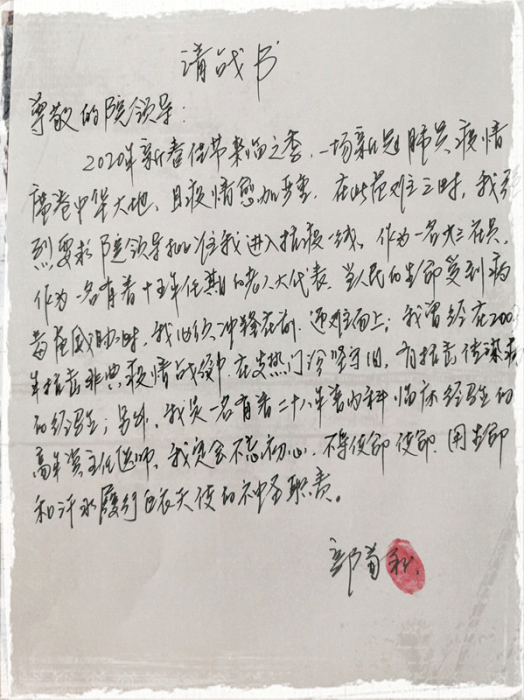 请战书
尊敬的院领导：
2020年新春佳节来临之季，一场新冠肺炎疫情
席卷中华大地，且疫情愈加严重，在此危难之时，我强
烈要求院领导批准我进入抗疫一线，作为一名九三社员，
作为一名有着十五年任期的老人大代表，当人民的生命受到病
毒危威胁时，我必须冲锋在前，迎难而上；我曾经在200
年抗击非典疫情战役中，在发热门诊坚守过，有抗击传染病
的经验；另外，我是一名有着二十八年着内科临床经验的
高年资主任医师，我定会不忘初心，不辱使命使命，用生命
和汗水履行白衣天使的神圣职责。
郭